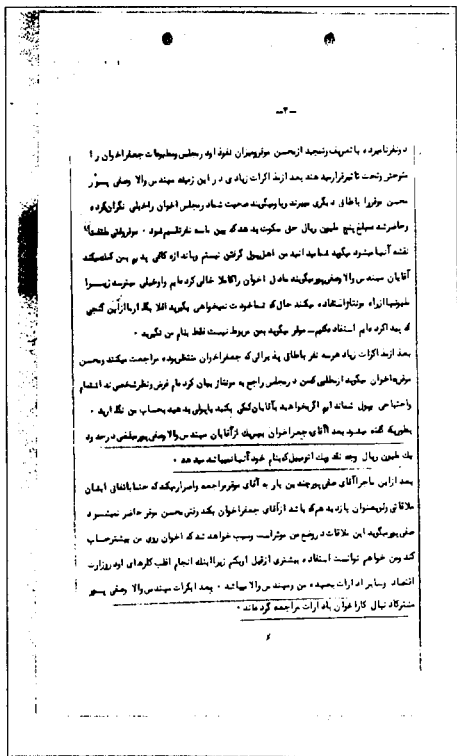 -۳-
دونفر نامبرده با تعریف و تمجید از محسن موقر و میزان نفوذ او در مجلس و مطبوعات جعفر اخوان را
متوحش و تحت تاثیر قرار میدهند بعد از مذاکرات زیادی در این زمینه مهندس والا و صفی پور
محسن موقر را باطاق دیگری میبرند و باو میگویند صحبت شما در مجلس اخوان را خیلی نگران کرده
و حاضر شده مبلغ پنج ملیون ریال حق سکوت بدهد که بین ما سه نفر تقسیم شود ۰ موقر وقتی
نقشه آنها میشود میگوید شما میدانید من اهل پول گرفتن نیستم و باندازه کافی پدرم بمن کمک میکند
آقایان مهندس والا و صفی پور میگویند ما دل اخوان را کاملا خالی کرده ایم و او خیلی میترسد زیرا
ملیونها از راه مونتاژ استفاده میکند حال که شما خودت نمیخواهی بگیرید اقلا بگذار ما از این گنجی
که پیدا کرده ایم استفاده بکنیم — موقر میگوید بمن مربوط نیست فقط بنام من نگیرید ۰
بعد از مذاکرات زیاد هر سه نفر باطاق پذیرائی که جعفر اخوان منتظر بوده مراجعت میکنند و محسن
موقر به اخوان میگوید از مطلبی که من در مجلس راجع به مونتاژ بیان کرده ام غرض و نظر شخصی نداشته ام
و احتیاجی بپول شما ندارم اگر بخواهید به آقایان کمکی بکنید یا پولی بدهید بحساب من نگذارید ۰
بطوریکه گفته میشود بعدا آقای جعفر اخوان بهریک از آقایان مهندس والا و صفی پور مبلغی در حدود
یک ملیون ریال وجه نقد و یک اتومبیل که بنام خود آنها میباشد میدهد ۰
بعد از این ماجرا آقای صفی پور چندین بار به آقای موقر مراجعه و اصرار میکند که حتما باتفاق ایشان
ملاقاتی ولو بعنوان بازدید هم که باشد از آقای جعفر اخوان بکند وقتی محسن موقر حاضر نمیشود
صفی پور میگوید این ملاقات در وضع من موثر است و سبب خواهد شد که اخوان روی من بیشتر حساب
کند و من خواهم توانست استفاده بیشتری از قبل او بکنم زیرا اینک انجام اغلب کارهای او در وزارت
اقتصاد و سایر ادارات بعهده من و مهندس والا میباشد ۰ بعد از مذاکرات مهندس والا و صفی پور
مشترکا دنبال کار اخوان به ادارات مراجعه کرده اند ۰